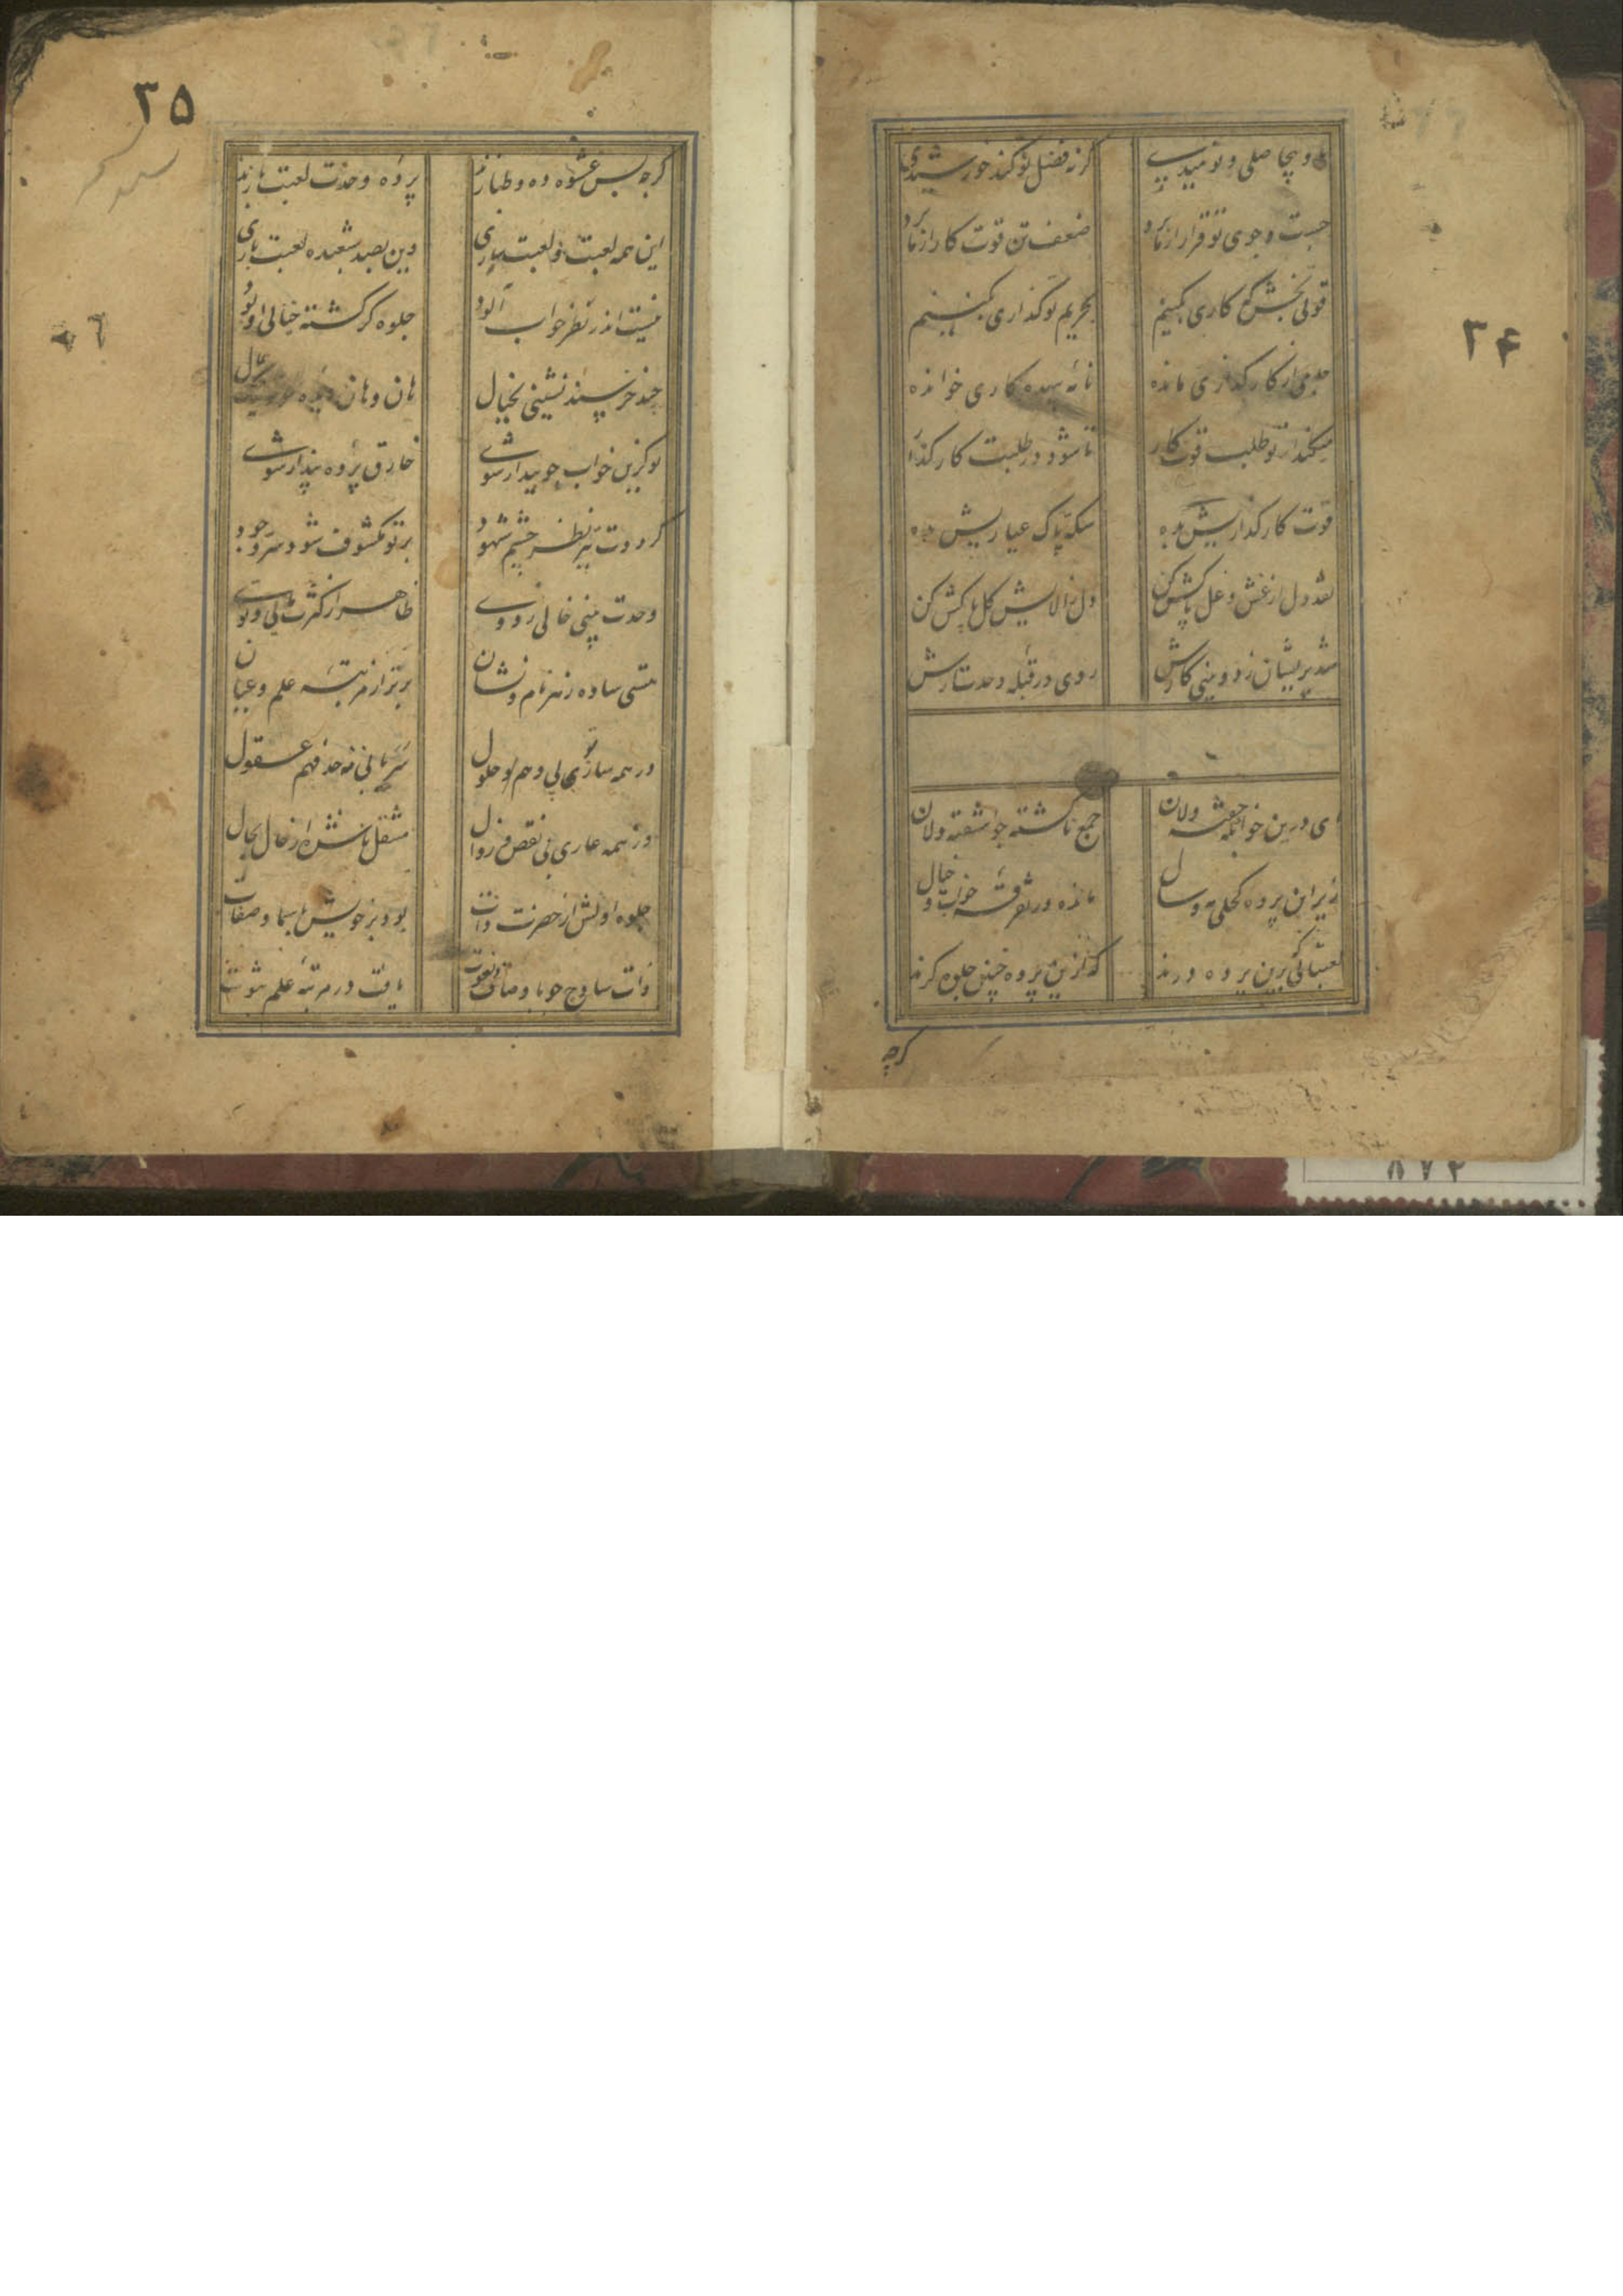 ۳۴
و بیحاصلی و نومیدی گر نه فضل تو کند خورشیدی
جست و جوی تو قرار از ما برد ضعف تن قوت کار از ما برد
قوتی بخش که کاری بکنیم بحریم تو گذاری بکنیم
جامی از کار گذاری مانده نامه بیهده کاری خوانده
میکند از تو طلب قوت کار تا شود در طلبت کار گذار
قوت کار گذاریش بده سکه پاک عیاریش بده
نقد دل از غش و غل پاکش کن دل ز آلایش گل پاکش کن
شد پریشان ز دو بینی کارش روی در قبله وحدت آرش
ای درین خوابگه خفته دلان جمع ناگشته چو آشفته دلان
زیر این پرده کحلی مه و سال مانده در تفرقه خواب و خیال
لعبتانی که برین پرده درند که ازین پرده چنین جلوه گرند
گرچه
۳۵
گرچه بس عشوه ده و طنازند پرده وحدت لعبت بازند
این همه لعبت و لعبت بازی وین بصد شعبده لعبت بازی
نیست اندر نظر خواب آلود جلوه گر گشته خیالی از بود
چند خرسند نشینی بخیال هان و هان دیده
تو کزین خواب چو بیدار شوی خارق پرده پندار شوی
گرددت تیز نظر چشم شهود بر تو مکشوف شود سر وجود
وحدت بینی خالی ز دوی ظاهر از کثرت مایی و توی
هستی ساده ز هر نام و نشان برتر از مرتبه علم و عیان
در همه ساری بی وهم حلول سریانی نه حد فهم عقول
وز همه عاری بی نقص و زوال متنقل باشش از حال بحال
جلوه اولش از حضرت ذات بود بر خویش باسما و صفات
ذات ساذج چو با وصاف و نعوت یافت در مرتبه علم ثبوت
۸۷۲